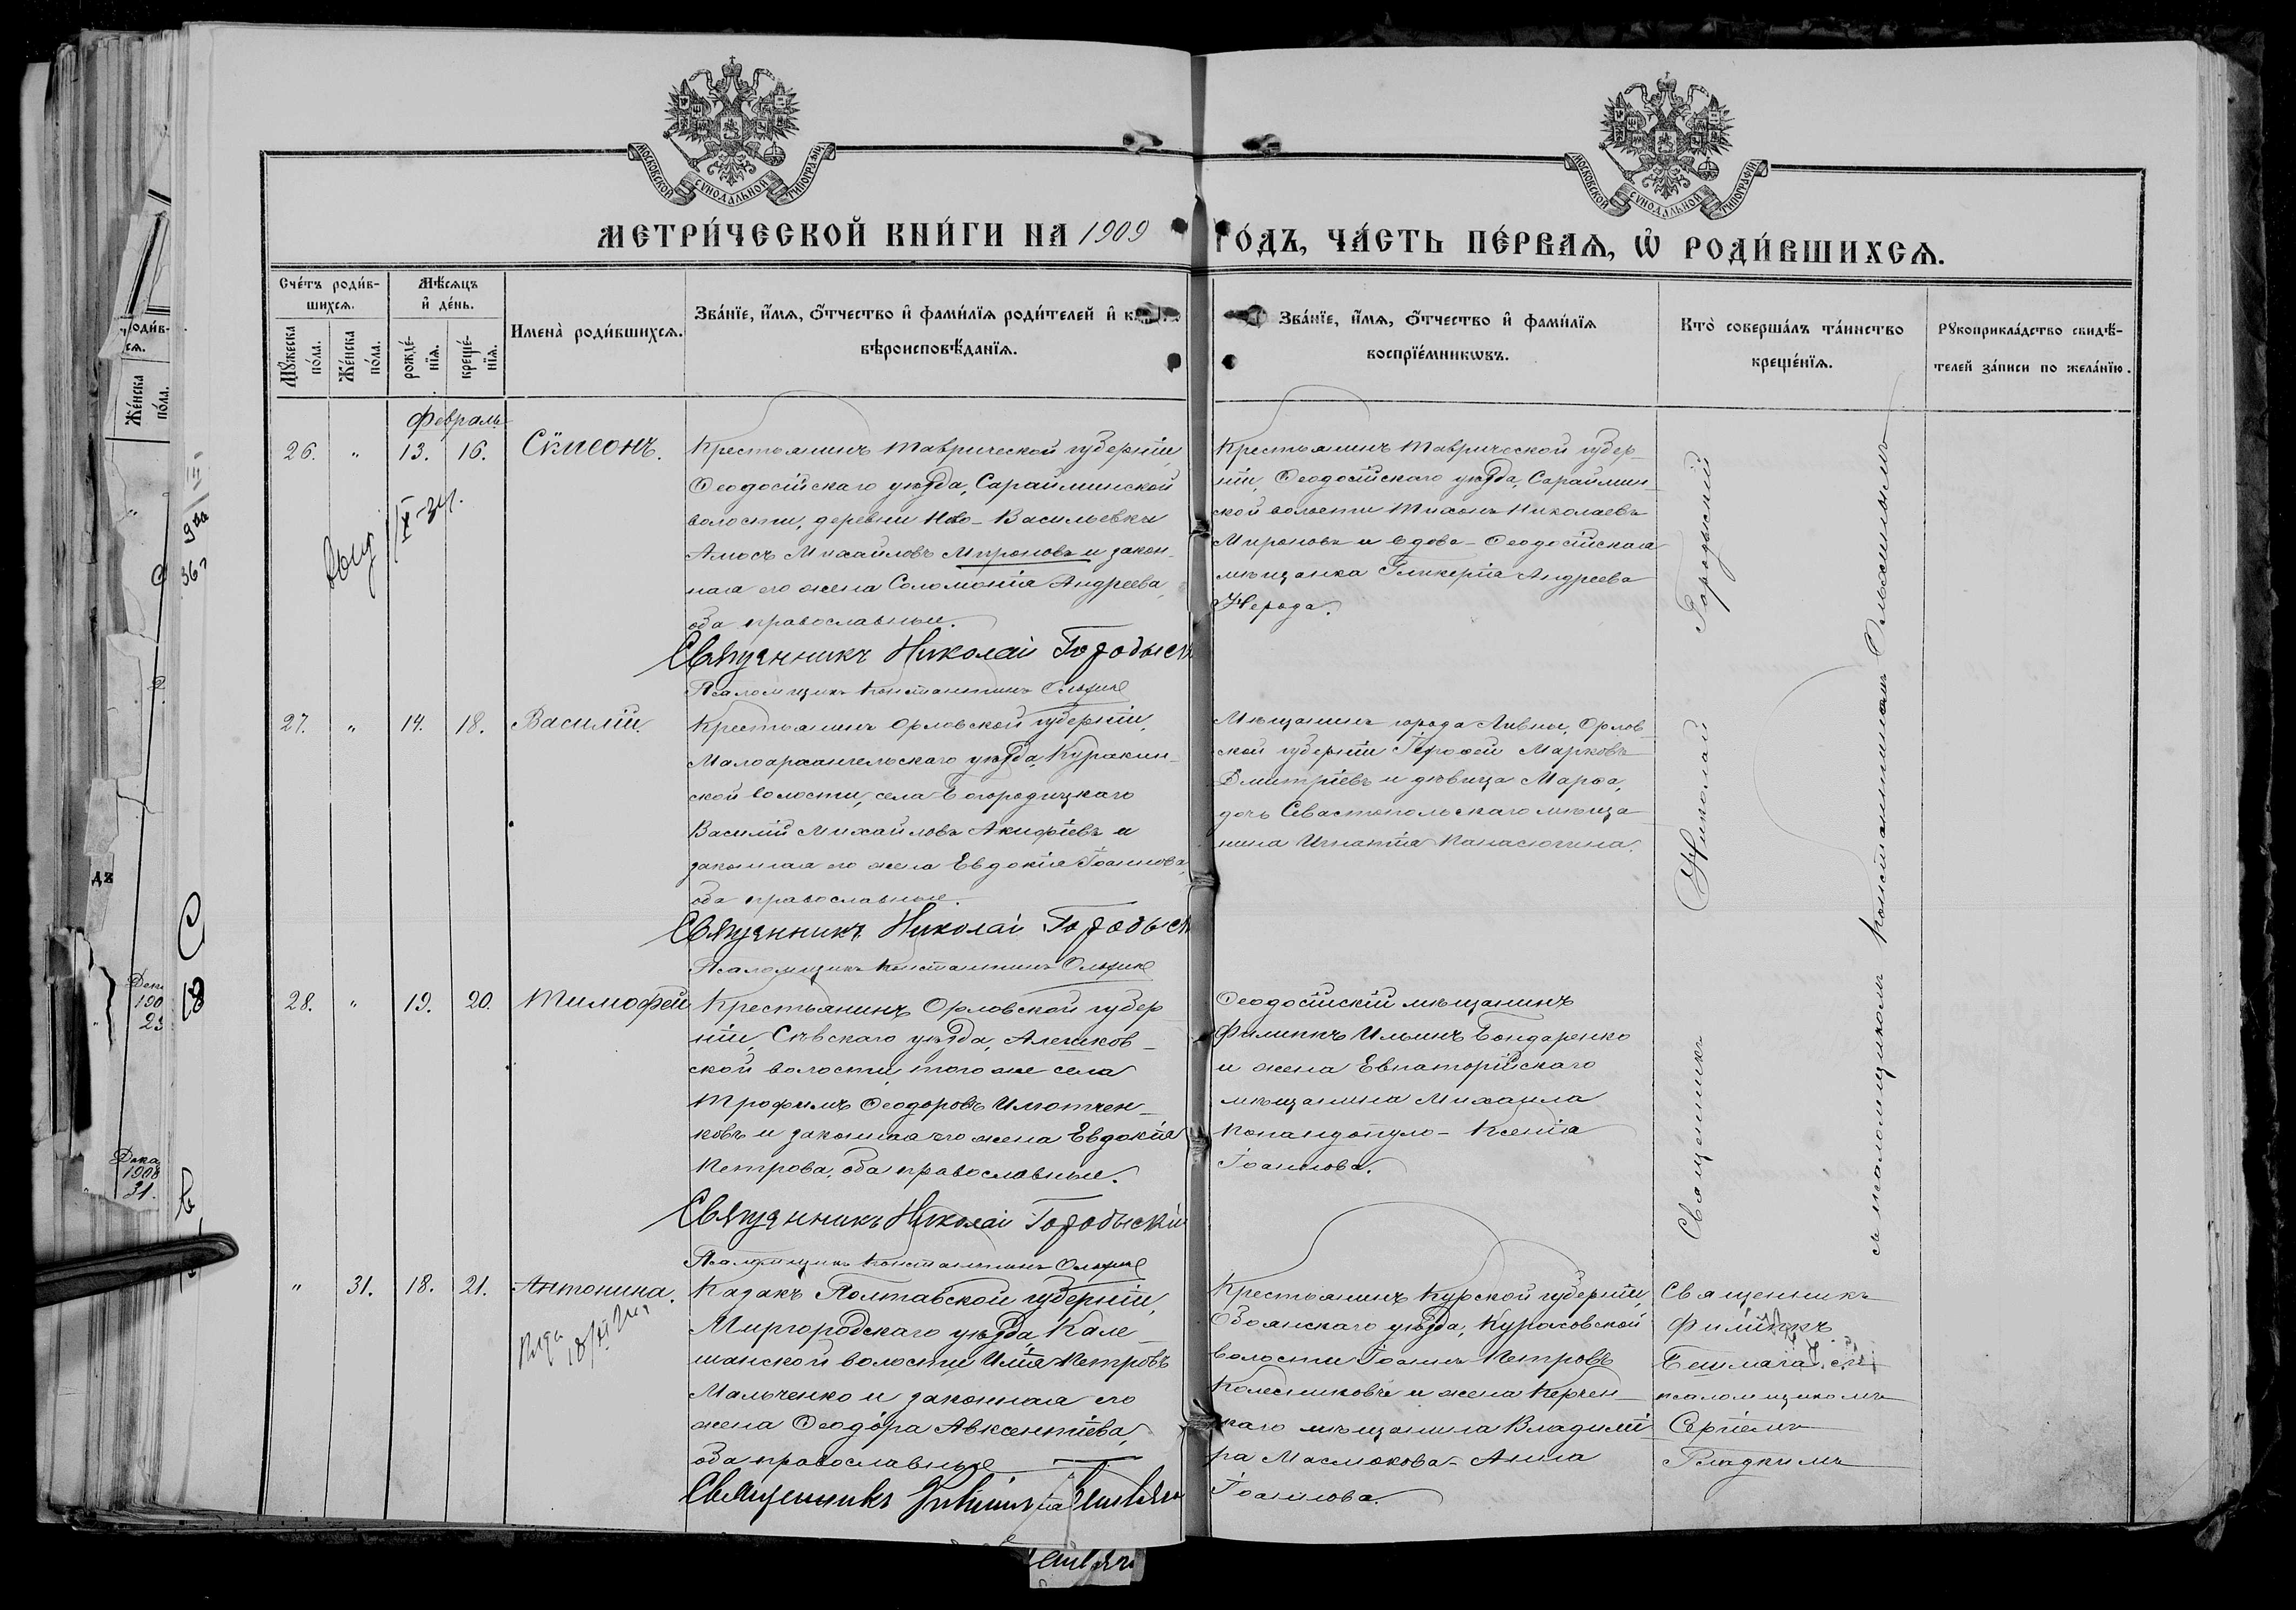 МОСКОВСКОЙ СѴНОДАЛЬНОЙ ТИПОГРАФІИ
МОСКОВСКОЙ СѴНОДАЛЬНОЙ ТИПОГРАФІИ
МЕТРИ́ЧЕСКОЙ КНИ́ГИ НА 1909
ГО́ДЪ, ЧА́СТЬ ПЕ́РВАѦ, Ѡ҆ РОДИ́ВШИХСѦ.
Сче́тъ роди́в-
шихсѧ.
Мꙋ́жеска по́ла.
Же́нска по́ла.
Мѣ́сѧцъ
и҆ де́нь.
рожде́-нїѧ.
креще́-нїѧ.
Имена̀ роди́вшихсѧ.
Зва́нїе, и҆́мѧ, ѻ҆́тчество и҆ фами́лїѧ роди́телей и҆
вѣроисповѣ́данїѧ.
Зва́нїе, и҆́мѧ, ѻ҆́тчество и҆ фами́лїѧ
воспрїе́мникѡвъ.
Кто̀ соверша́лъ та́инство
креще́нїѧ.
Рꙋкоприкла́дство свидѣ́-
телей за́писи по жела́нїю.
Февраль
26. " 13. 16. Сѵмеонъ.
Крестьянинъ Таврической губерніи,
Ѳеодосійскаго уѣзда, Сарайминской
волости, деревни Ново-Васильевки
Амосъ Михайловъ Мироновъ и закон-
ная его жена Соломонія Андреева,
оба православные.
Священникъ Николай Городыск
Псаломщикъ Константинъ
Крестьянинъ Таврической губер-
ніи, Ѳеодосійскаго уѣзда, Сараймин-
ской волости Тихонъ Николаевъ
Мироновъ и вдова - Ѳеодосійская
мѣщанка Гликерія Андреева
27. " 14. 18. Василій.
Крестьянинъ Орловской губерніи,
Малоархангельскаго уѣзда, Куракин-
ской волости, села Богородицкаго
Василій Михайловъ Акифіевъ и
законная его жена Евдокія Іоаннова,
оба православные.
Священникъ Николай Городыск
Псаломщикъ Константинъ
Мѣщанинъ города Ливны, Орлов-
ской губерніи Марковъ
Димитріевъ и дѣвица Марѳа,
дочь Севастопольскаго мѣща-
нина Игнатія
28. " 19. 20. Тимофей
Крестьянинъ Орловской губер
ніи, Сѣвскаго уѣзда, Алешков-
ской волости, того же села
Трофимъ Ѳеодоровъ
ковъ и законная его жена Евдокія
Петрова, оба православные.
Священникъ Николай Городыскій
Псаломщикъ Константинъ
Ѳеодосійскій мѣщанинъ
Филиппъ Ильинъ Бондаренко
и жена Евпаторійскаго
мѣщанина Михаила
Ксенія
Іоаннова.
Священникъ Николай Городыскій
съ псаломщикомъ Константиномъ
" 31. 18. 21. Антонина.
Казакъ Полтавской губерніи,
Миргородскаго уѣзда,
волости Илія Петровъ
Мальченко и законная его
жена Ѳеодора Авксентіева,
оба православные
Священникъ
Крестьянинъ Курской губерніи,
Обоянскаго уѣзда, Кураховской
волости Іоаннъ Петровъ
Колесниковъ и жена Керчен-
скаго мѣщанина Владимі-
ра Маслюкова - Анна
Іоаннова.
Священникъ
Филиппъ
псаломщикомъ
Сергіемъ
Гладкимъ